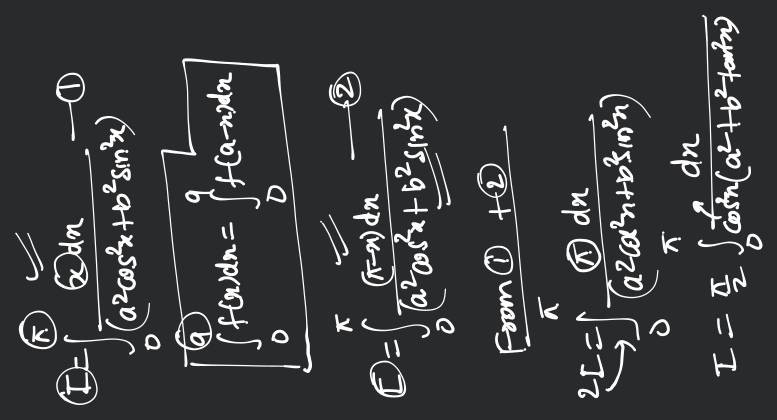 I = ∫₀^π x dx / (a²cos²x + b²sin²x) — ①
∫₀^a f(x)dx = ∫₀^a f(a-x)dx
I = ∫₀^π (π-x)dx / (a²cos²x + b²sin²x) — ②
From ① + ②
2I = ∫₀^π π dx / (a²cos²x + b²sin²x)
I = π/2 ∫₀^π dx / cos²x(a² + b²tan²x)